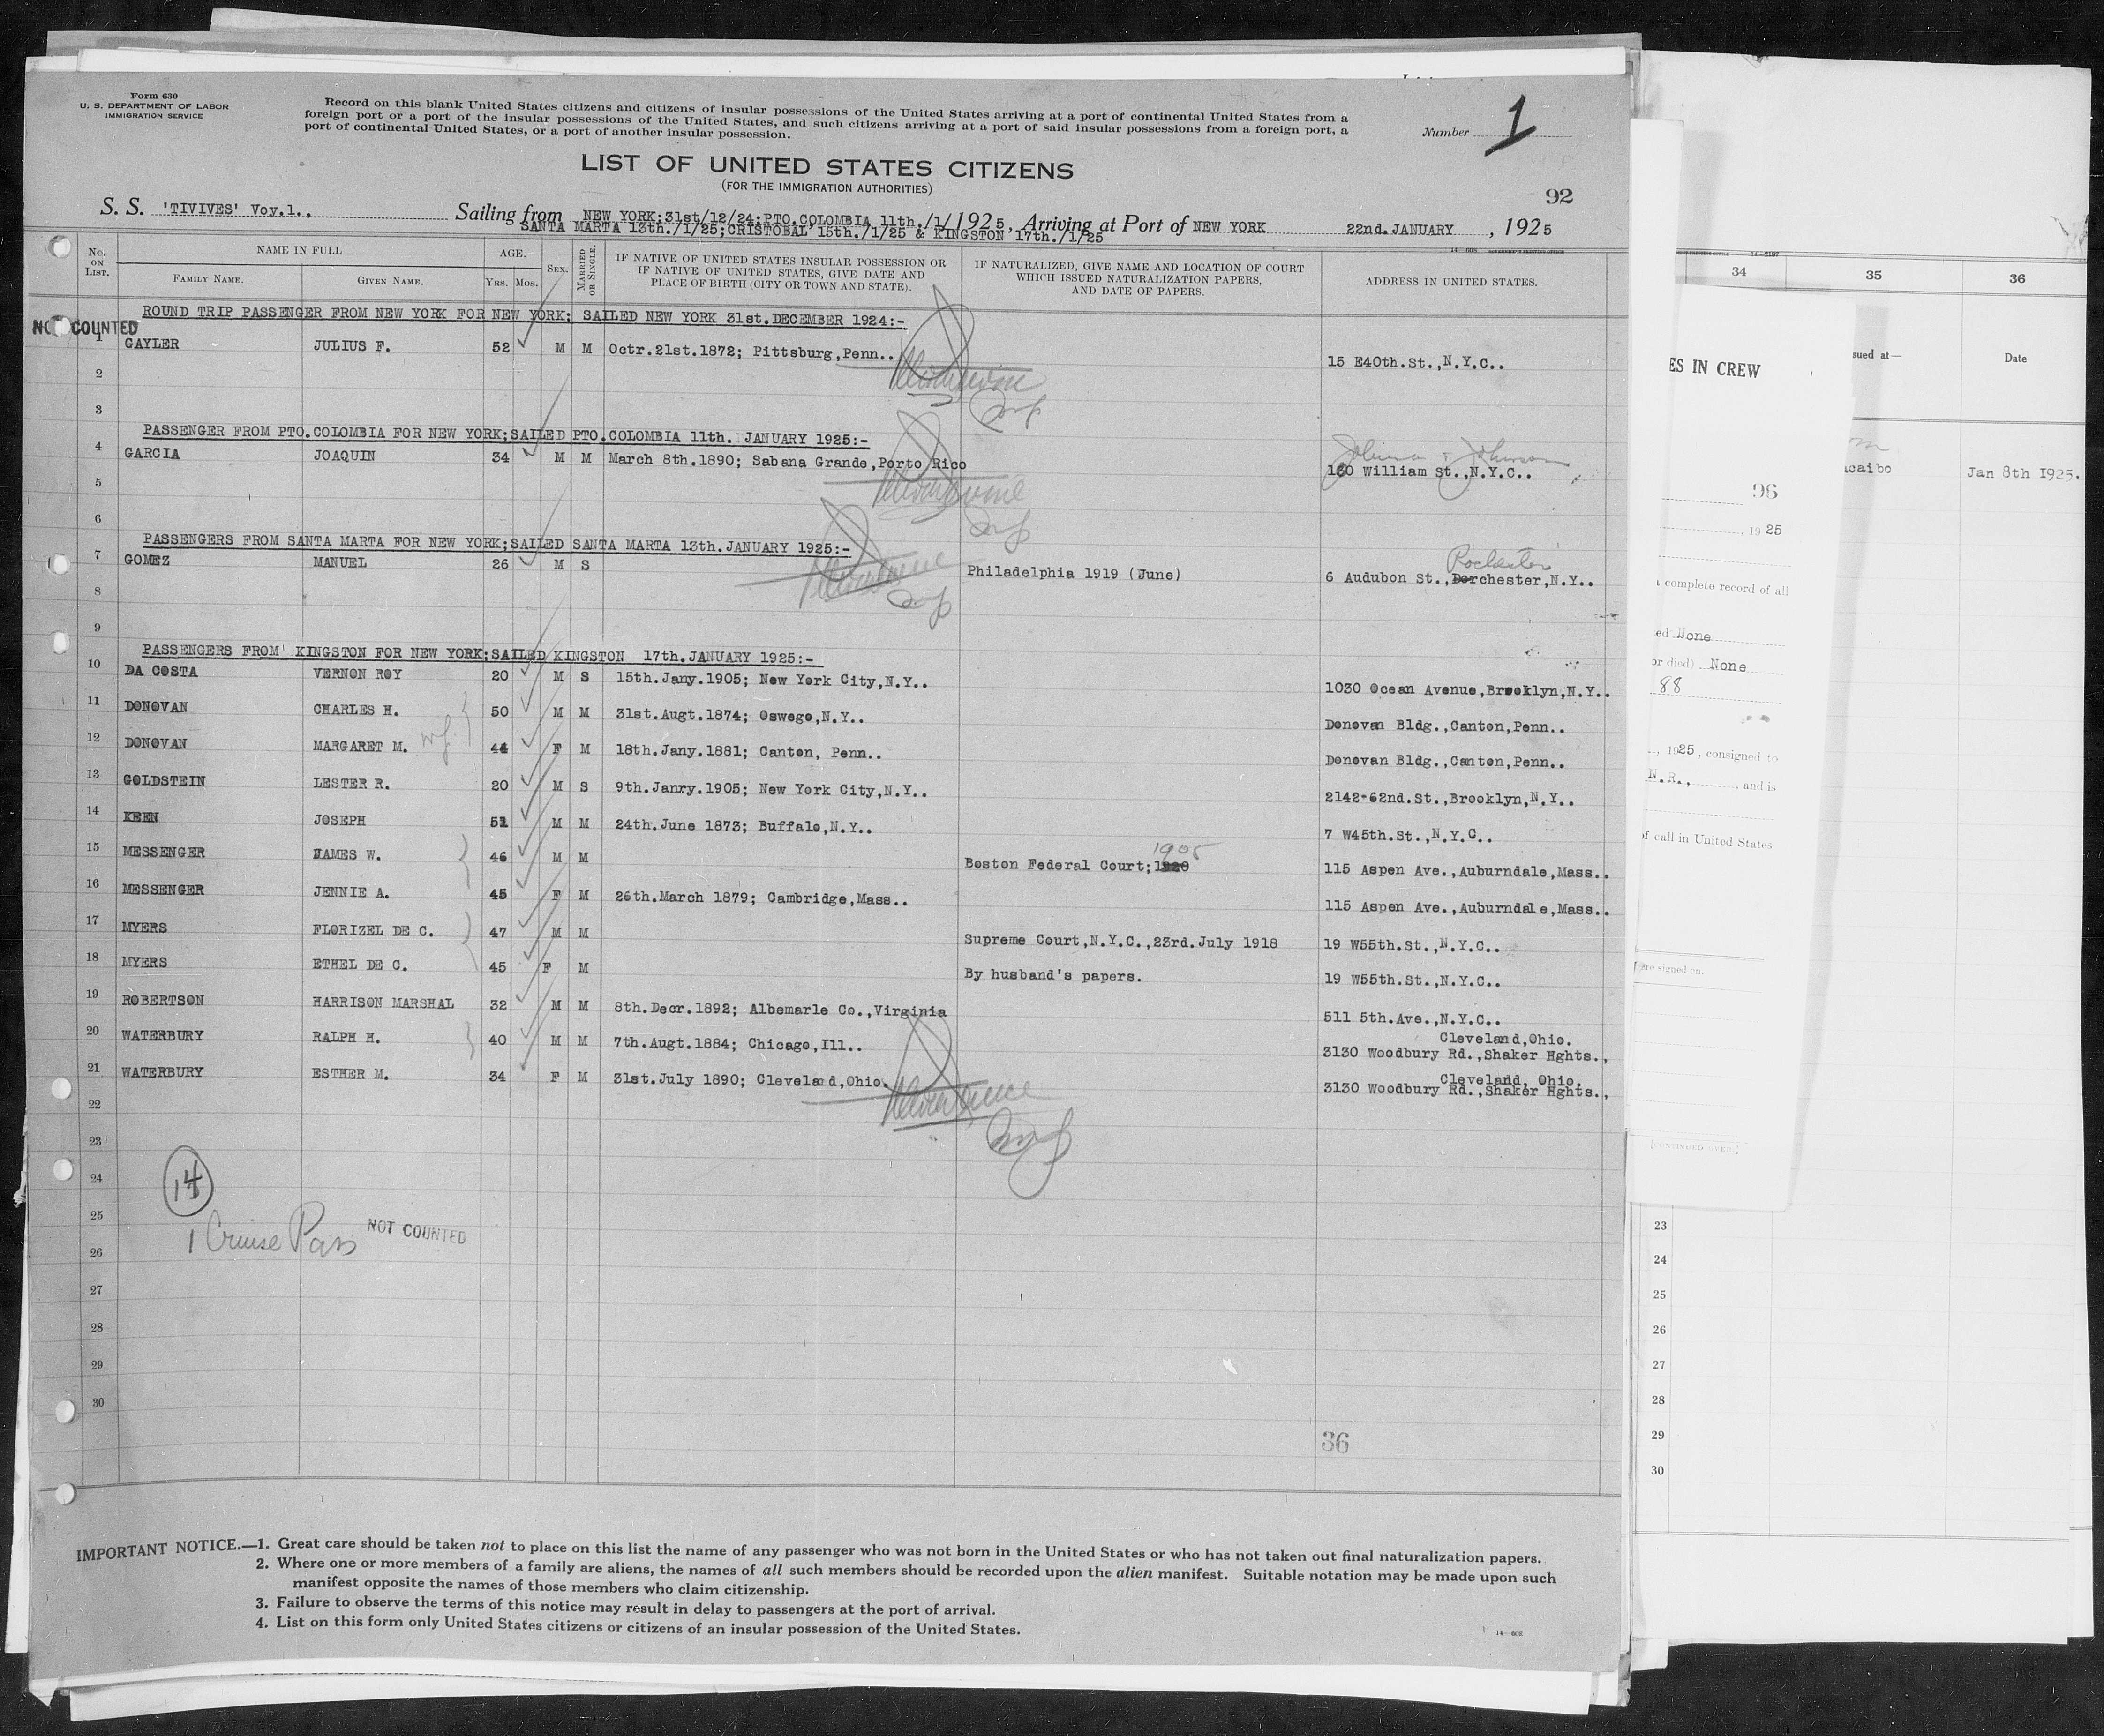 Form 630
U. S. DEPARTMENT OF LABOR
IMMIGRATION SERVICE
Record on this blank United States citizens and citizens of insular possessions of the United States arriving at a port of continental United States from a
foreign port or a port of the insular possessions of the United States, and such citizens arriving at a port of said insular possessions from a foreign port, a
port of continental United States, or a port of another insular possession.
Number 1
LIST OF UNITED STATES CITIZENS
(FOR THE IMMIGRATION AUTHORITIES)
92
S. S. 'TIVIVES' Voy.1.. Sailing from NEW YORK;31st/12/24;PTO.COLOMBIA 11th./1/1925, Arriving at Port of NEW YORK 22nd.JANUARY , 1925
SANTA MARTA 13th./1/25;CRISTOBAL 15th./1/25 & KINGSTON 17th./1/25
No. ON LIST. NAME IN FULL FAMILY NAME. GIVEN NAME. AGE. Yrs. Mos. SEX. MARRIED OR SINGLE. IF NATIVE OF UNITED STATES INSULAR POSSESSION OR IF NATIVE OF UNITED STATES, GIVE DATE AND PLACE OF BIRTH (CITY OR TOWN AND STATE). IF NATURALIZED, GIVE NAME AND LOCATION OF COURT WHICH ISSUED NATURALIZATION PAPERS, AND DATE OF PAPERS. ADDRESS IN UNITED STATES.
ROUND TRIP PASSENGER FROM NEW YORK FOR NEW YORK; SAILED NEW YORK 31st.DECEMBER 1924:-
NOT COUNTED
1 GAYLER JULIUS F. 52 M M Octr.21st.1872; Pittsburg,Penn.. 15 E40th.St.,N.Y.C..
2
3
PASSENGER FROM PTO.COLOMBIA FOR NEW YORK;SAILED PTO.COLOMBIA 11th. JANUARY 1925:-
4 GARCIA JOAQUIN 34 M M March 8th.1890; Sabana Grande,Porto Rico 160 William St.,N.Y.C..
5
6
PASSENGERS FROM SANTA MARTA FOR NEW YORK;SAILED SANTA MARTA 13th.JANUARY 1925:-
Rochester
7 GOMEZ MANUEL 26 M S Philadelphia 1919 (June) 6 Audubon St.,Dorchester,N.Y..
8
9
PASSENGERS FROM KINGSTON FOR NEW YORK;SAILED KINGSTON 17th.JANUARY 1925:-
10 DA COSTA VERNON ROY 20 M S 15th.Jany.1905; New York City,N.Y.. 1030 Ocean Avenue,Brooklyn,N.Y..
11 DONOVAN CHARLES H. 50 M M 31st.Augt.1874; Oswego,N.Y.. Donovan Bldg.,Canton,Penn..
12 DONOVAN MARGARET M. wf 44 F M 18th.Jany.1881; Canton, Penn.. Donovan Bldg.,Canton,Penn..
13 GOLDSTEIN LESTER R. 20 M S 9th.Janry.1905; New York City,N.Y.. 2142-62nd.St.,Brooklyn,N.Y..
14 KEEN JOSEPH 51 M M 24th.June 1873; Buffalo,N.Y.. 7 W45th.St.,N.Y.C..
1905
15 MESSENGER JAMES W. 46 M M Boston Federal Court;1920 115 Aspen Ave.,Auburndale,Mass..
16 MESSENGER JENNIE A. 45 F M 26th.March 1879; Cambridge,Mass.. 115 Aspen Ave.,Auburndale,Mass..
17 MYERS FLORIZEL DE C. 47 M M Supreme Court,N.Y.C.,23rd.July 1918 19 W55th.St.,N.Y.C..
18 MYERS ETHEL DE C. 45 F M By husband's papers. 19 W55th.St.,N.Y.C..
19 ROBERTSON HARRISON MARSHAL 32 M M 8th.Decr.1892; Albemarle Co.,Virginia 511 5th.Ave.,N.Y.C..
Cleveland,Ohio.
20 WATERBURY RALPH H. 40 M M 7th.Augt.1884; Chicago,Ill.. 3130 Woodbury Rd.,Shaker Hghts.,
Cleveland, Ohio.
21 WATERBURY ESTHER M. 34 F M 31st.July 1890; Cleveland,Ohio. 3130 Woodbury Rd.,Shaker Hghts.,
22
23
24
14
25
1 Cruise Pass NOT COUNTED
26
27
28
29
30
36
IMPORTANT NOTICE.—1. Great care should be taken not to place on this list the name of any passenger who was not born in the United States or who has not taken out final naturalization papers.
2. Where one or more members of a family are aliens, the names of all such members should be recorded upon the alien manifest. Suitable notation may be made upon such
manifest opposite the names of those members who claim citizenship.
3. Failure to observe the terms of this notice may result in delay to passengers at the port of arrival.
4. List on this form only United States citizens or citizens of an insular possession of the United States.
14—608
34 35 36
sued at— Date
ES IN CREW
acaibo Jan 8th 1925.
96
, 1925
complete record of all
ed None
or died) None
88
, 1925, consigned to
N.R., , and is
of call in United States
are signed on.
[CONTINUED OVER.]
23
24
25
26
27
28
29
30